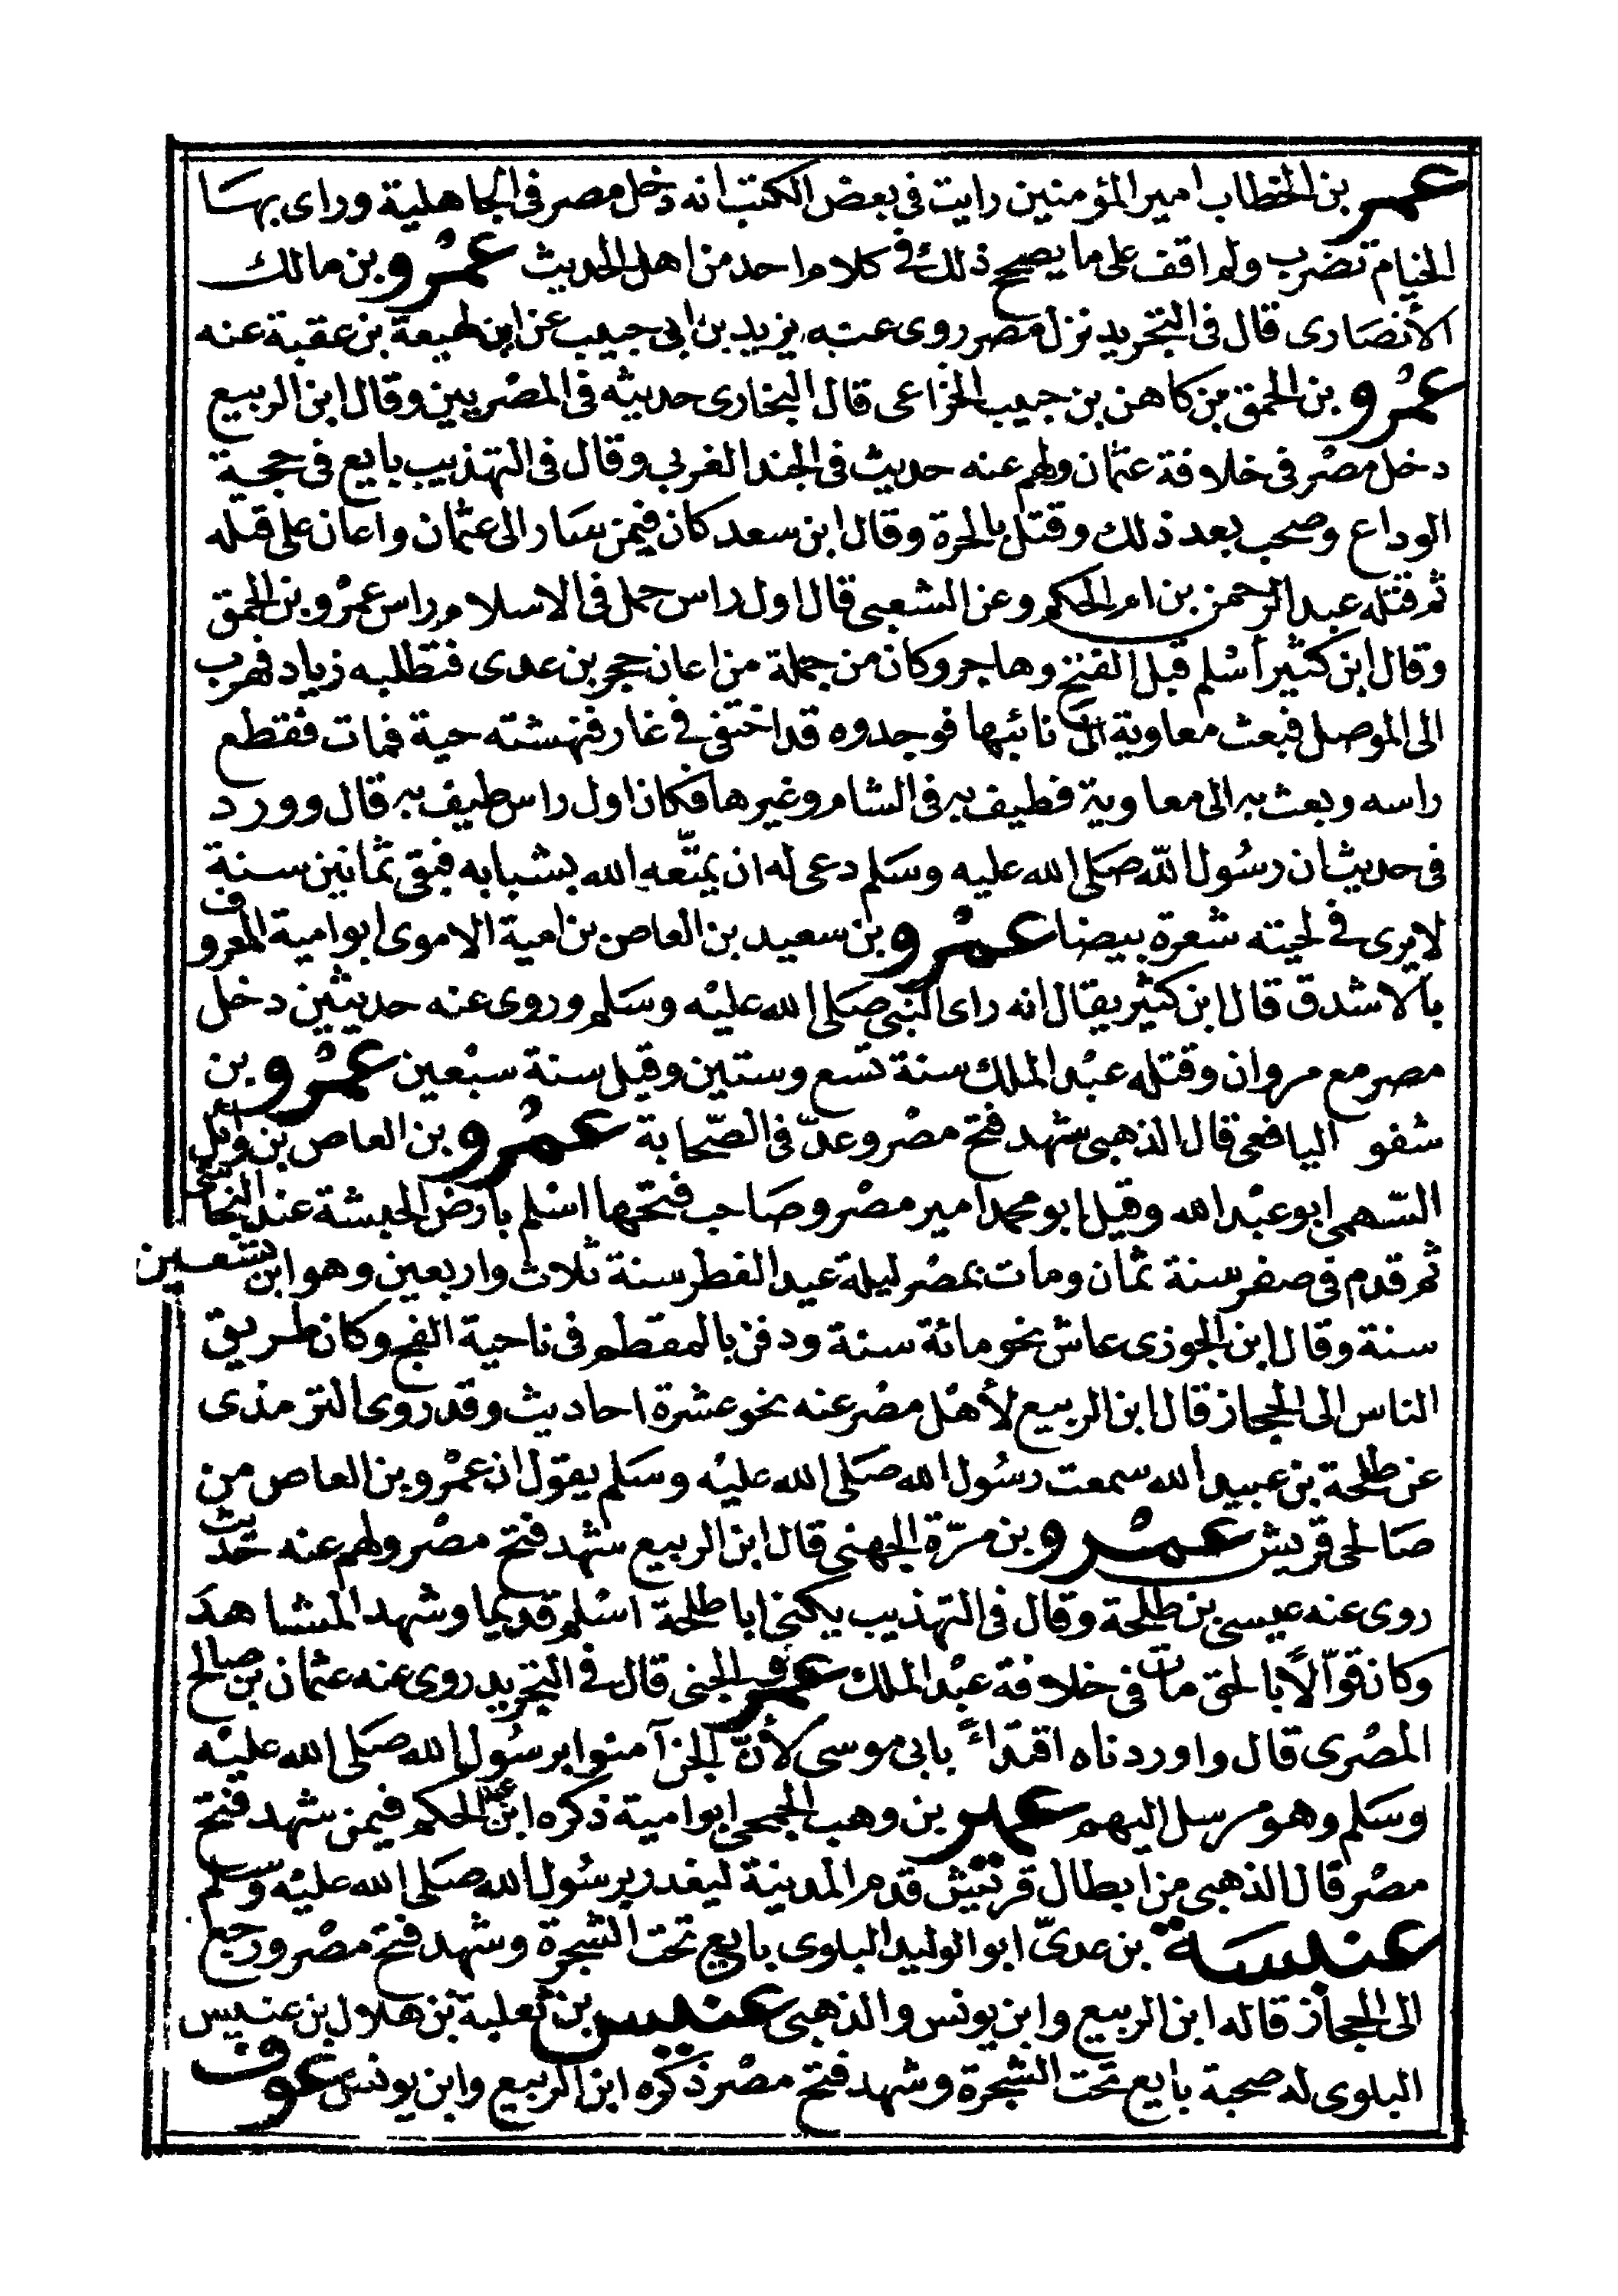 عمر بن الخطاب امير المؤمنين رايت فى بعض الكتب انه دخل مصر فى الجاهلية وراى بها
الخيام تضرب ولم اقف على ما يصحح ذلك فى كلام احد من اهل الحديث عمرو بن مالك
الأنصارى قال فى التجريد نزل مصر روى عنه يزيد بن ابى حبيب عن ابن لهيعة بن عقبة عنه
عمرو بن الحمق بن كاهن بن حبيب الخزاعى قال البخارى حديثه فى المصريين وقال ابن الربيع
دخل مصر فى خلافة عثمان ولهم عنه حديث فى الجند الغربى وقال فى التهذيب بايع فى حجية
الوداع وصحب بعد ذلك وقتل بالحرة وقال ابن سعد كان فيمن سار الى عثمان واعان على قتله
ثم قتله عبد الرحمن بن ام الحكم وعن الشعبى قال اول راس حمل فى الاسلام راس عمرو بن الحمق
وقال ابن كثير أسلم قبل الفتح وهاجر وكان من جملة من اعان حجر بن عدى فتطلبه زياد فهرب
الى الموصل فبعث معاوية الى نائبها فوجدوه قد اختفى فى غار فنهشته حية فمات فقطع
راسه وبعث به الى معاوية فطيف به فى الشام وغيرها فكان اول راس طيف به قال وورد
فى حديث ان رسول الله صلى الله عليه وسلم دعى له ان يمتّعه الله بشبابه فبقى ثمانين سنة
لا يرى فى لحيته شعرة بيضا عمرو بن سعيد بن العاص بن امية الاموى ابو امية المعروف
بالاشدق قال ابن كثير يقال انه راى النبى صلى الله عليه وسلم وروى عنه حديثين دخل
مصر مع مروان وقتله عبد الملك سنة تسع وستين وقيل سنة سبعين عمرو بن
شفو اليافعى قال الذهبى شهد فتح مصر وعدّ فى الصّحابة عمرو بن العاص بن وائل
السّهمى ابو عبد الله وقيل ابو محمد امير مصر وصاحب فتحها اسلم بارض الحبشة عند النجاشى
ثم قدم فى صفر سنة ثمان ومات بمصر ليلة عيد الفطر سنة ثلاث واربعين وهو ابن تسعين
سنة وقال ابن الجوزى عاش نحو مائة سنة ودفن بالمقطم فى ناحية الفج وكان طريق
الناس الى الحجاز قال ابن الربيع لأهل مصر عنه نحو عشرة احاديث وقد روى الترمذى
عن طلحة بن عبيد الله سمعت رسول الله صلى الله عليه وسلم يقول ان عمرو بن العاص من
صالحى قريش عمرو بن مرّة الجهنى قال ابن الربيع شهد فتح مصر ولهم عنه حديث
روى عنه عيسى بن طلحة وقال فى التهذيب يكنى ابا طلحة اسلم قديما وشهد المشاهد
وكان قوّالًا بالحق مات فى خلافة عبد الملك عمرو الجنى قال فى التجريد روى عنه عثمان بن صالح
المصرى قال واوردناه اقتداءً بابى موسى لأنّ الجن آمنوا برسول الله صلى الله عليه
وسلم وهو مرسل اليهم عمير بن وهب الجمحى ابو امية ذكره ابن عبد الحكم فيمن شهد فتح
مصر قال الذهبى من ابطال قريش قدم المدينة ليغدر برسول الله صلى الله عليه وسلم
عنبسة بن عدىّ ابو الوليد البلوى بايع تحت الشجرة وشهد فتح مصر ورجع
الى الحجاز قاله ابن الربيع وابن يونس والذهبى عنبس بن ثعلبة بن هلال بن عنبس
البلوى له صحبة بايع تحت الشجرة وشهد فتح مصر ذكره ابن الربيع وابن يونس عوف